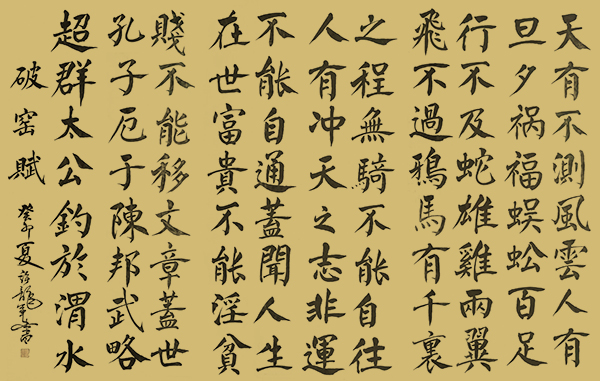 天有不測風雲人有
旦夕祸福蜈蚣百足
行不及蛇雄雞兩翼
飛不過鴉馬有千裏
之程無騎不能自往
人有冲天之志非運
不能自通蓋聞人生
在世富貴不能淫貧
賤不能移文章蓋世
孔子厄于陳邦武略
超群太公釣於渭水
破窑賦
癸卯夏龍軍書